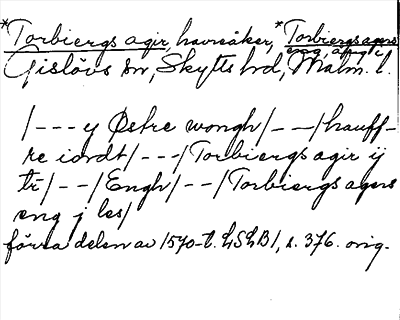 *Torbiergs agir, havreåker, *Torbiergs agers
eng, äng i
Gislövs sn, Skytts hd, Malm. l.
/--- y Østre wongh/---/hauff-
re iordt/---/Torbiergs agir ij
tr/--/Engh/--/Torbiergs agers
eng j les/
förra delen av 1570-t. LSHB1, s. 376. orig.